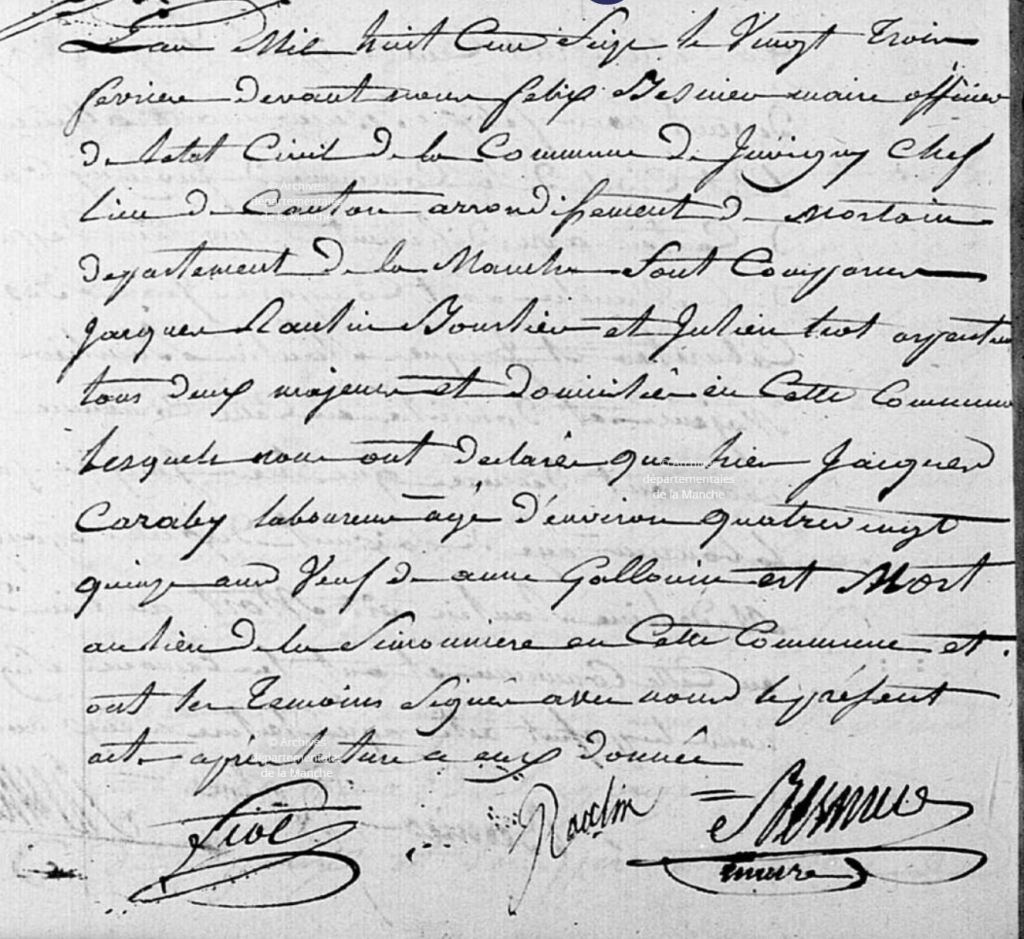 L'an Mil huit Cent Seize le Vingt Trois
fevrier devant nous felix Besnier maire officier
de letat Civil de la Commune de Juvigny Chef
lieu de Canton arrondissement de Mortain
departement de la Manche Sont Comparus
Jacques Raulin Bourlier et Julien triot arpenteur
tous deux majeurs et domiciliés en Cette Commune
lesquels nous ont declarés que hier Jacques
Caraby laboureur agé d'environ quatre vingt
quinze ans Veuf de anne Gallouin est Mort
au lieu de la Simonniere en Cette Commune et
ont les Temoins Signés avec nous le présent
acte après lecture a eux donnée
Besnier
maire
© Archives
départementales
de la Manche
© Archives
départementales
de la Manche
© Archives
départementales
de la Manche